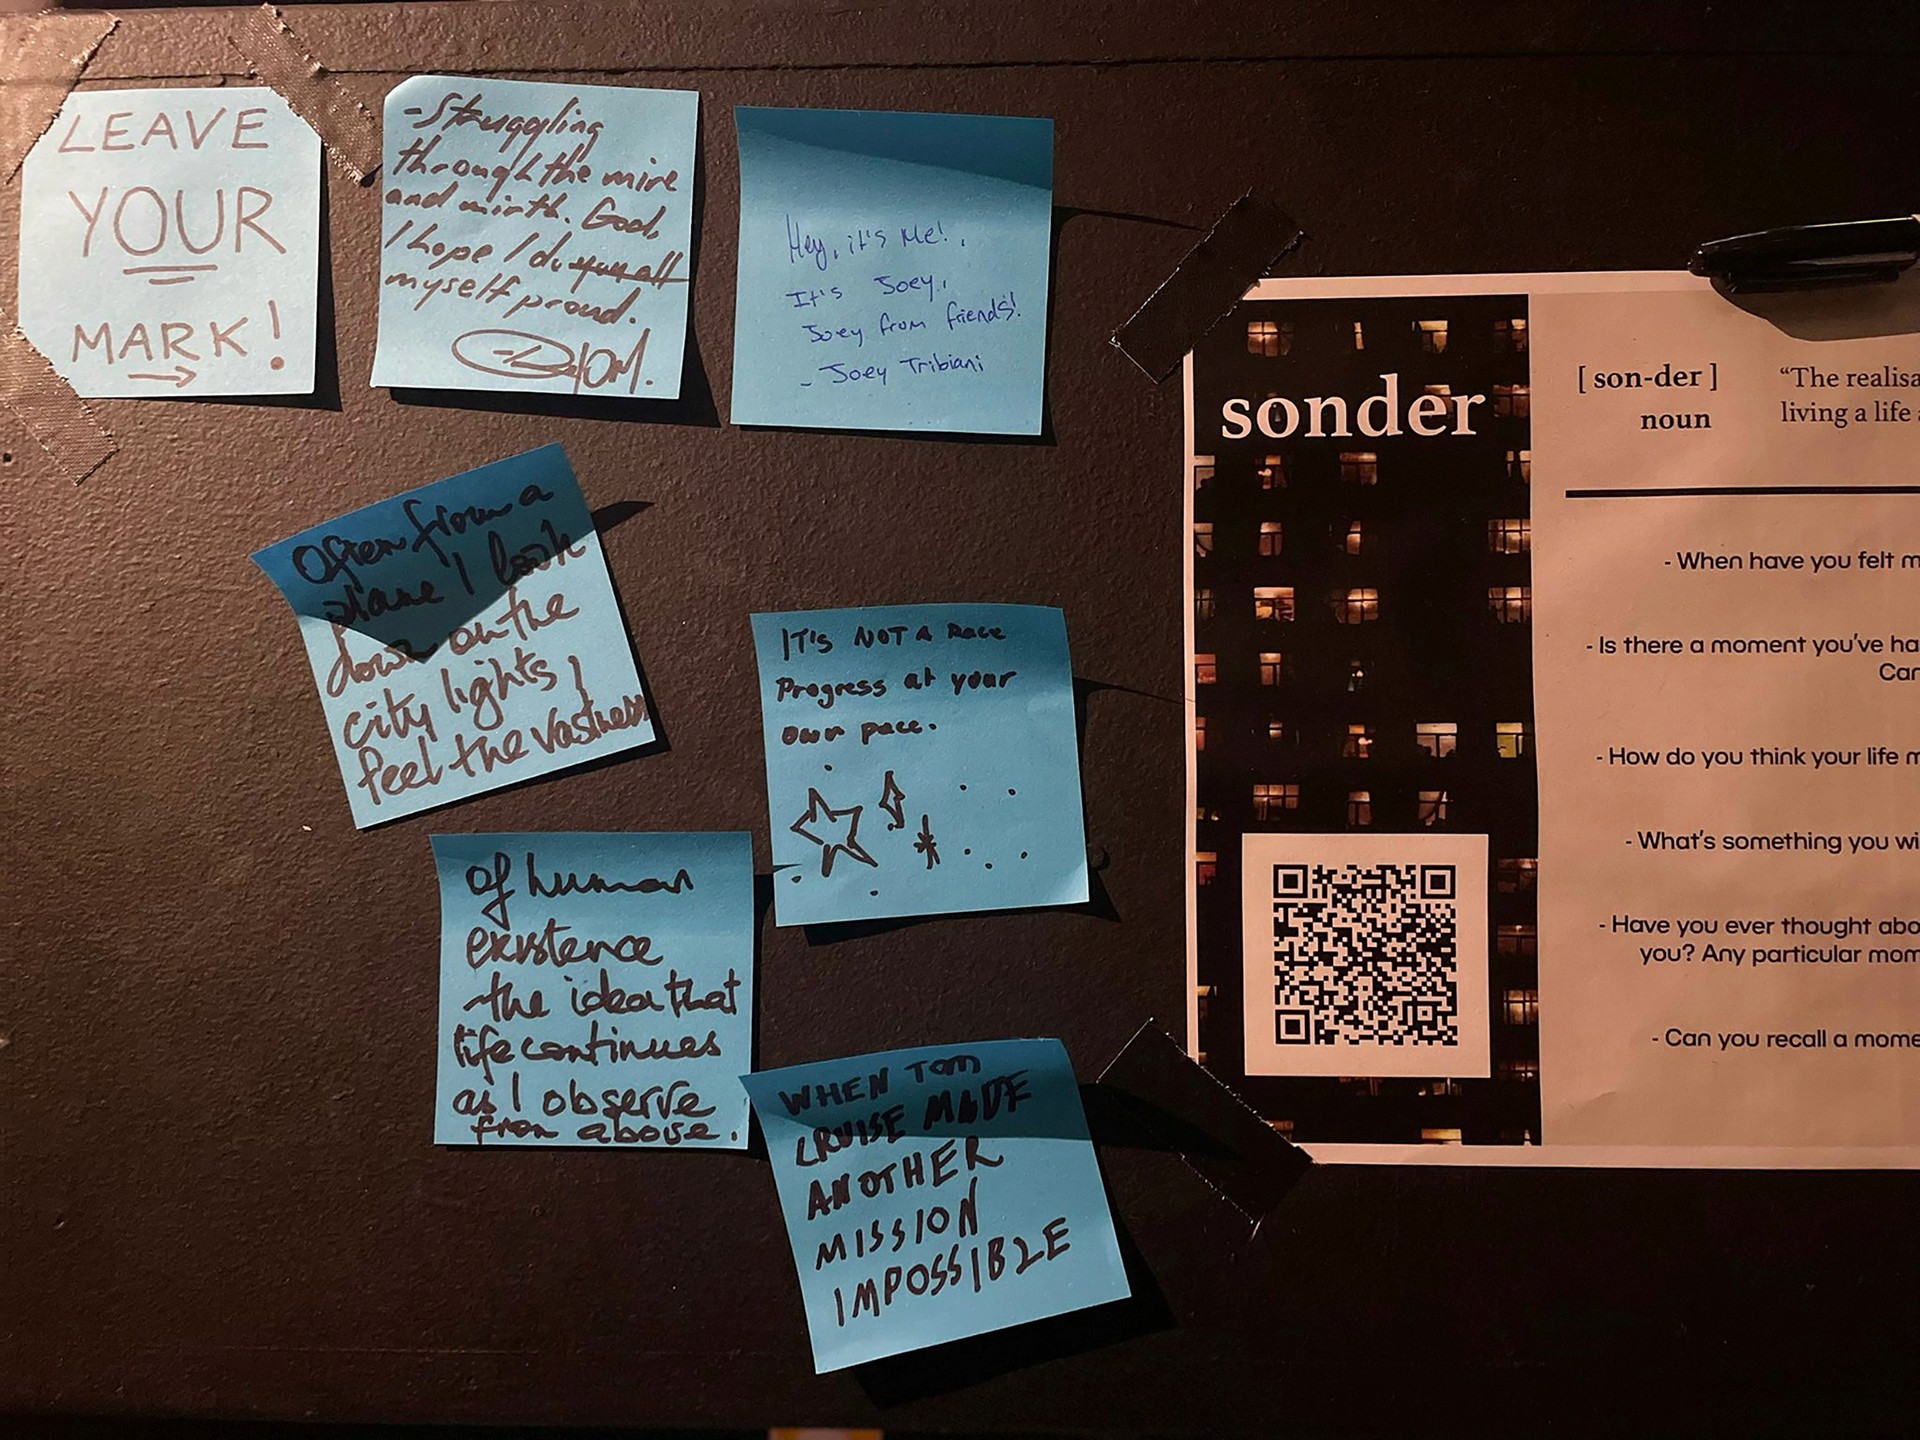 LEAVE
YOUR
MARK!
-Struggling
through the mire
and mirth. God,
I hope I do
myself proud.
Hey, it's Me!,
It's Joey,
Joey from friends!
- Joey Tribiani
Often from a
plane I look
down on the
city lights I
feel the vastness
of human
existence
-the idea that
life continues
as I observe
from above.
IT'S NOT A Race
Progress at your
own pace.
WHEN TOM
CRUISE MADE
ANOTHER
MISSION
IMPOSSIBLE
sonder
[ son-der ]
noun
"The realisa
living a life
- When have you felt m
- Is there a moment you've ha
Can
- How do you think your life m
- What's something you wi
- Have you ever thought abo
you? Any particular mom
- Can you recall a mome